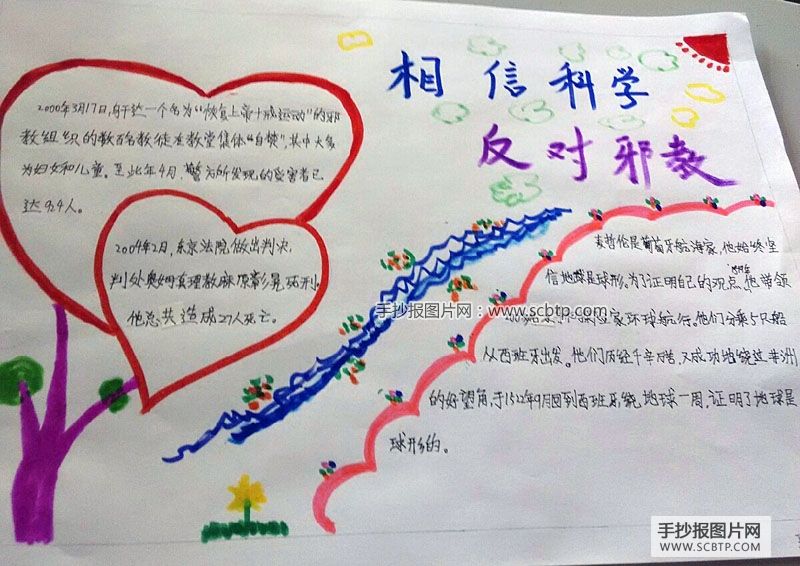 相信科学
反对邪教
2000年3月17日,乌干达一个名为“恢复上帝十戒运动”的邪
教组织的数百名教徒在教堂集体“自焚”,其中大多
为妇女和儿童。至此年4月,警方所发现的受害者已
达924人。
2004年2月,东京法院做出判决,
判处奥姆真理教麻原彰晃死刑。
他总共造成27人死亡。
麦哲伦是葡萄牙航海家,他始终坚
信地球是球形。为了证明自己的观点,他带领
环球航行。他们分乘5只船
从西班牙出发。他们历经千辛
成功地绕过非洲
的好望角,于1522年9月回到西班牙绕地球一周,证明了地球是
球形的。
手抄报图片网:www.scbtp.com
手抄报图片网
WWW.SCBTP.COM